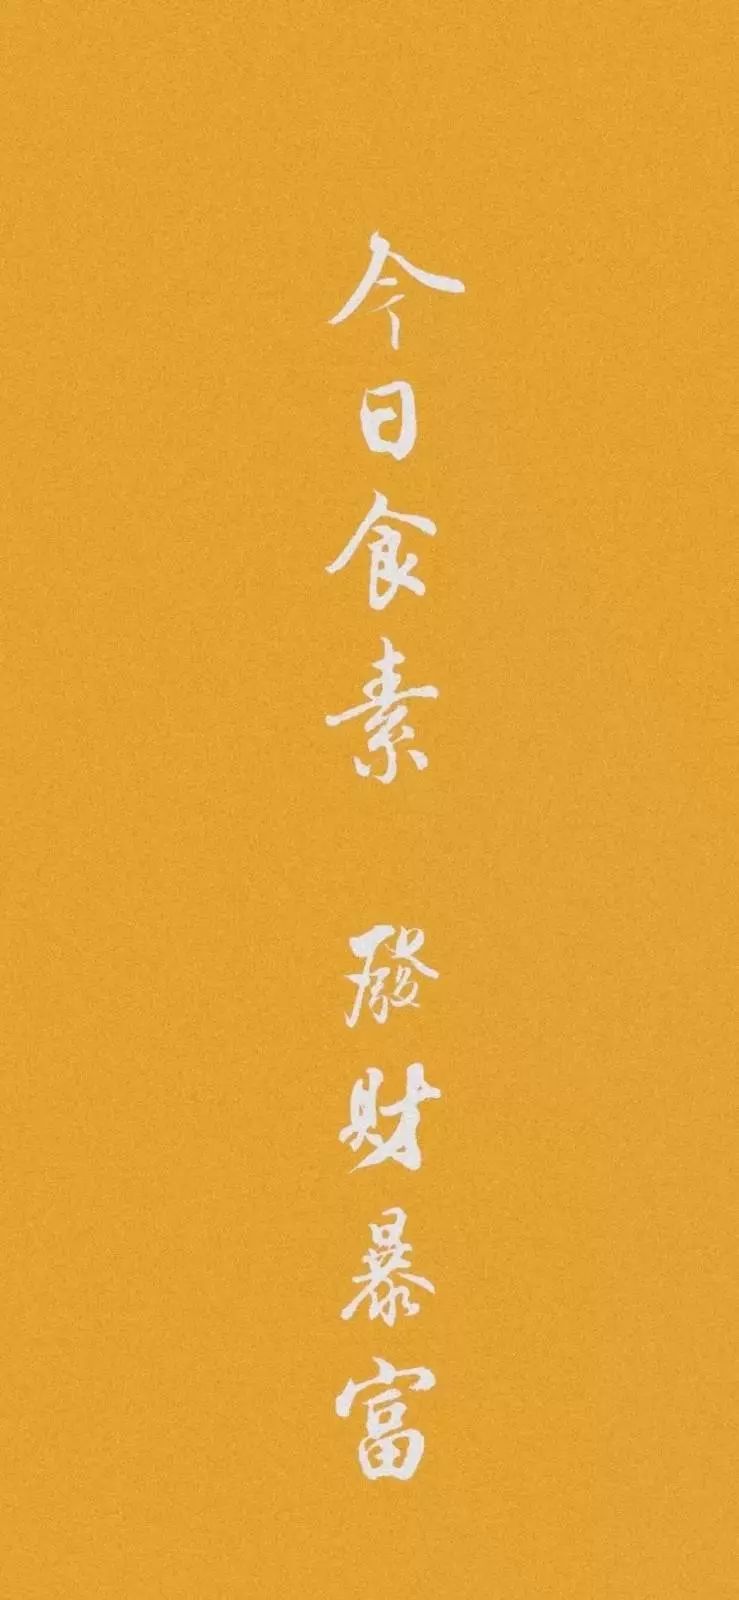 今日食素 發財暴富